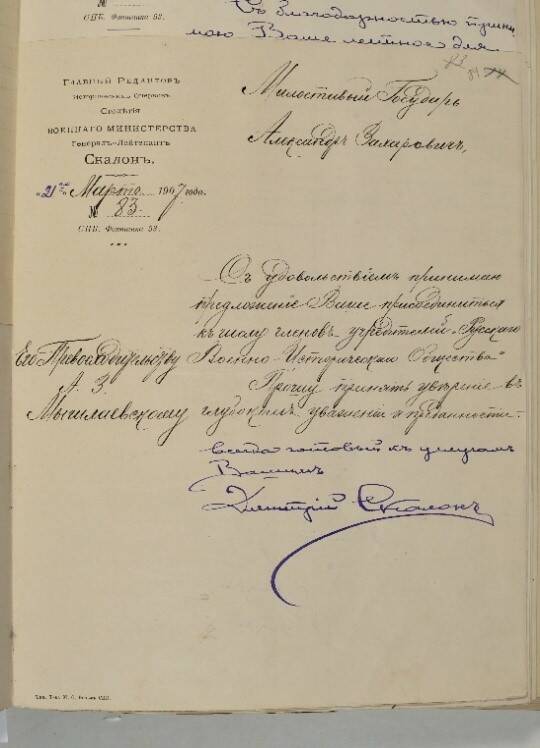 СПБ. Фонтанка 52.
Съ благодарностью прини
маю Ваше лестное для
83
84
Главный Редакторъ
Историческихъ Очерковъ
Столѣтія
ВОЕННАГО МИНИСТЕРСТВА
Генералъ-Лейтенантъ
Скалонъ.
„21го“ Марта 1907 года.
№ 83.
СПБ. Фонтанка 52.
Милостивый Государь
Александръ Захаровичъ,
Съ удовольствіемъ принимаю
предложеніе Ваше присоединиться
къ числу членовъ учредителей „Русскаго
Военно-Историческаго Общества“
Прошу принять увѣреніе въ
глубокомъ уваженіи и преданности.
Его Превосходительству
А. З.
Мышлаевскому
всегда готовый къ услугамъ
Вашимъ
Дмитрій Скалонъ